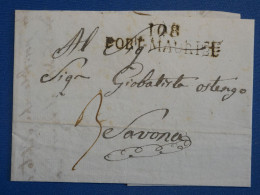 108
PORT-MAURICE
Al Sig
Sigr Giobatista ostengo
3
Savona